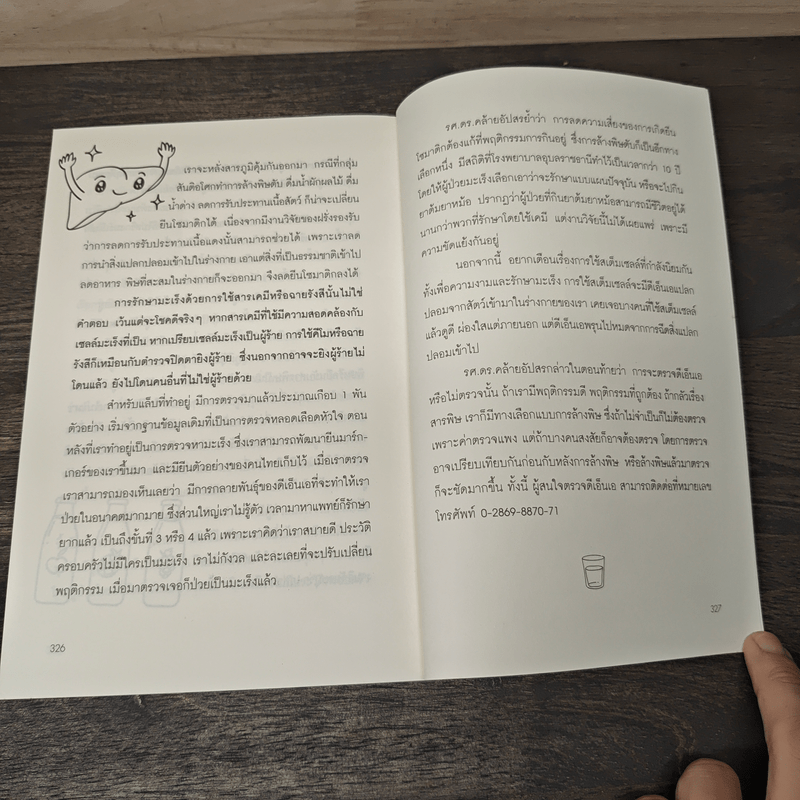 เราจะหลั่งสารภูมิคุ้มกันออกมา กรณีที่กลุ่ม
สันติอโศกทำการล้างพิษตับ ดื่มน้ำผักผลไม้ ดื่ม
น้ำด่าง ลดการรับประทานเนื้อสัตว์ ก็น่าจะเปลี่ยน
ยีนโซมาติกได้ เนื่องจากมีงานวิจัยของฝรั่งรองรับ
ว่าการลดการรับประทานเนื้อแดงนั้นสามารถช่วยได้ เพราะเราลด
การนำสิ่งแปลกปลอมเข้าไปในร่างกาย เอาแต่สิ่งที่เป็นธรรมชาติเข้าไป
ลดอาหาร พิษที่สะสมในร่างกายก็จะออกมา จึงลดยีนโซมาติกลงได้
การรักษามะเร็งด้วยการใช้สารเคมีหรือฉายรังสีนั้นไม่ใช่
คำตอบ เว้นแต่จะโชคดีจริงๆ หากสารเคมีที่ใช้มีความสอดคล้องกับ
เซลล์มะเร็งที่เป็น หากเปรียบเซลล์มะเร็งเป็นผู้ร้าย การใช้คีโมหรือฉาย
รังสีก็เหมือนกับตำรวจปิดตายิงผู้ร้าย ซึ่งนอกจากอาจจะยิงผู้ร้ายไม่
โดนแล้ว ยังไปโดนคนอื่นที่ไม่ใช่ผู้ร้ายด้วย
สำหรับแล็บที่ทำอยู่ มีการตรวจมาแล้วประมาณเกือบ 1 พัน
ตัวอย่าง เริ่มจากฐานข้อมูลเดิมที่เป็นการตรวจหลอดเลือดหัวใจ ตอน
หลังที่เราทำอยู่เป็นการตรวจหามะเร็ง ซึ่งเราสามารถพัฒนายีนมาร์ก-
เกอร์ของเราขึ้นมา และมียีนตัวอย่างของคนไทยเก็บไว้ เมื่อเราตรวจ
เราสามารถมองเห็นเลยว่า มีการกลายพันธุ์ของดีเอ็นเอที่จะทำให้เรา
ป่วยในอนาคตมากมาย ซึ่งส่วนใหญ่เราไม่รู้ตัว เวลามาหาแพทย์ก็รักษา
ยากแล้ว เป็นถึงขั้นที่ 3 หรือ 4 แล้ว เพราะเราคิดว่าเราสบายดี ประวัติ
ครอบครัวไม่มีใครเป็นมะเร็ง เราไม่กังวล และละเลยที่จะปรับเปลี่ยน
พฤติกรรม เมื่อมาตรวจเจอก็ป่วยเป็นมะเร็งแล้ว
326
รศ.ดร.คล้ายอัปสรย้ำว่า การลดความเสี่ยงของการเกิดยีน
โซมาติกต้องแก้ที่พฤติกรรมการกินอยู่ ซึ่งการล้างพิษตับก็เป็นอีกทาง
เลือกหนึ่ง มีสถิติที่โรงพยาบาลอุบลราชธานีทำไว้เป็นเวลากว่า 10 ปี
โดยให้ผู้ป่วยมะเร็งเลือกเอาว่าจะรักษาแบบแผนปัจจุบัน หรือจะไปกิน
ยาต้มยาหม้อ ปรากฏว่าผู้ป่วยที่กินยาต้มยาหม้อสามารถมีชีวิตอยู่ได้
นานกว่าพวกที่รักษาโดยใช้เคมี แต่งานวิจัยนี้ไม่ได้เผยแพร่ เพราะมี
ความขัดแย้งกันอยู่
นอกจากนี้ อยากเตือนเรื่องการใช้สเต็มเซลล์ที่กำลังนิยมกัน
ทั้งเพื่อความงามและรักษามะเร็ง การใช้สเต็มเซลล์จะมีดีเอ็นเอแปลก
ปลอมจากสัตว์เข้ามาในร่างกายของเรา เคยเจอบางคนที่ใช้สเต็มเซลล์
แล้วดูดี ผ่องใสแต่ภายนอก แต่ดีเอ็นเอพรุนไปหมดจากการฉีดสิ่งแปลก
ปลอมเข้าไป
รศ.ดร.คล้ายอัปสรกล่าวในตอนท้ายว่า การจะตรวจดีเอ็นเอ
หรือไม่ตรวจนั้น ถ้าเรามีพฤติกรรมดี พฤติกรรมที่ถูกต้อง ถ้ากลัวเรื่อง
สารพิษ เราก็มีทางเลือกแบบการล้างพิษ ซึ่งถ้าไม่จำเป็นก็ไม่ต้องตรวจ
เพราะค่าตรวจแพง แต่ถ้าบางคนสงสัยก็อาจต้องตรวจ โดยการตรวจ
อาจเปรียบเทียบกันก่อนกับหลังการล้างพิษ หรือล้างพิษแล้วมาตรวจ
ก็จะชัดมากขึ้น ทั้งนี้ ผู้สนใจตรวจดีเอ็นเอ สามารถติดต่อที่หมายเลข
โทรศัพท์ 0-2869-8870-71
327